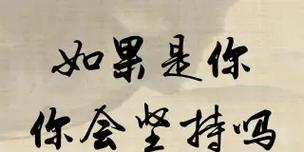 如果是你
你会坚持吗